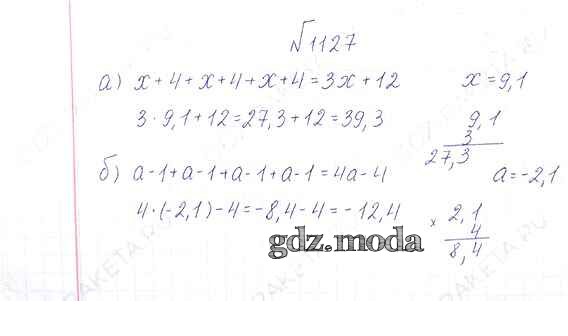 №1127
а) x+4+x+4+x+4=3x+12 x=9,1
3·9,1+12=27,3+12=39,3
9,1
3
27,3
б) a-1+a-1+a-1+a-1=4a-4 a=-2,1
4·(-2,1)-4=-8,4-4=-12,4
× 2,1
4
8,4
gdz.moda